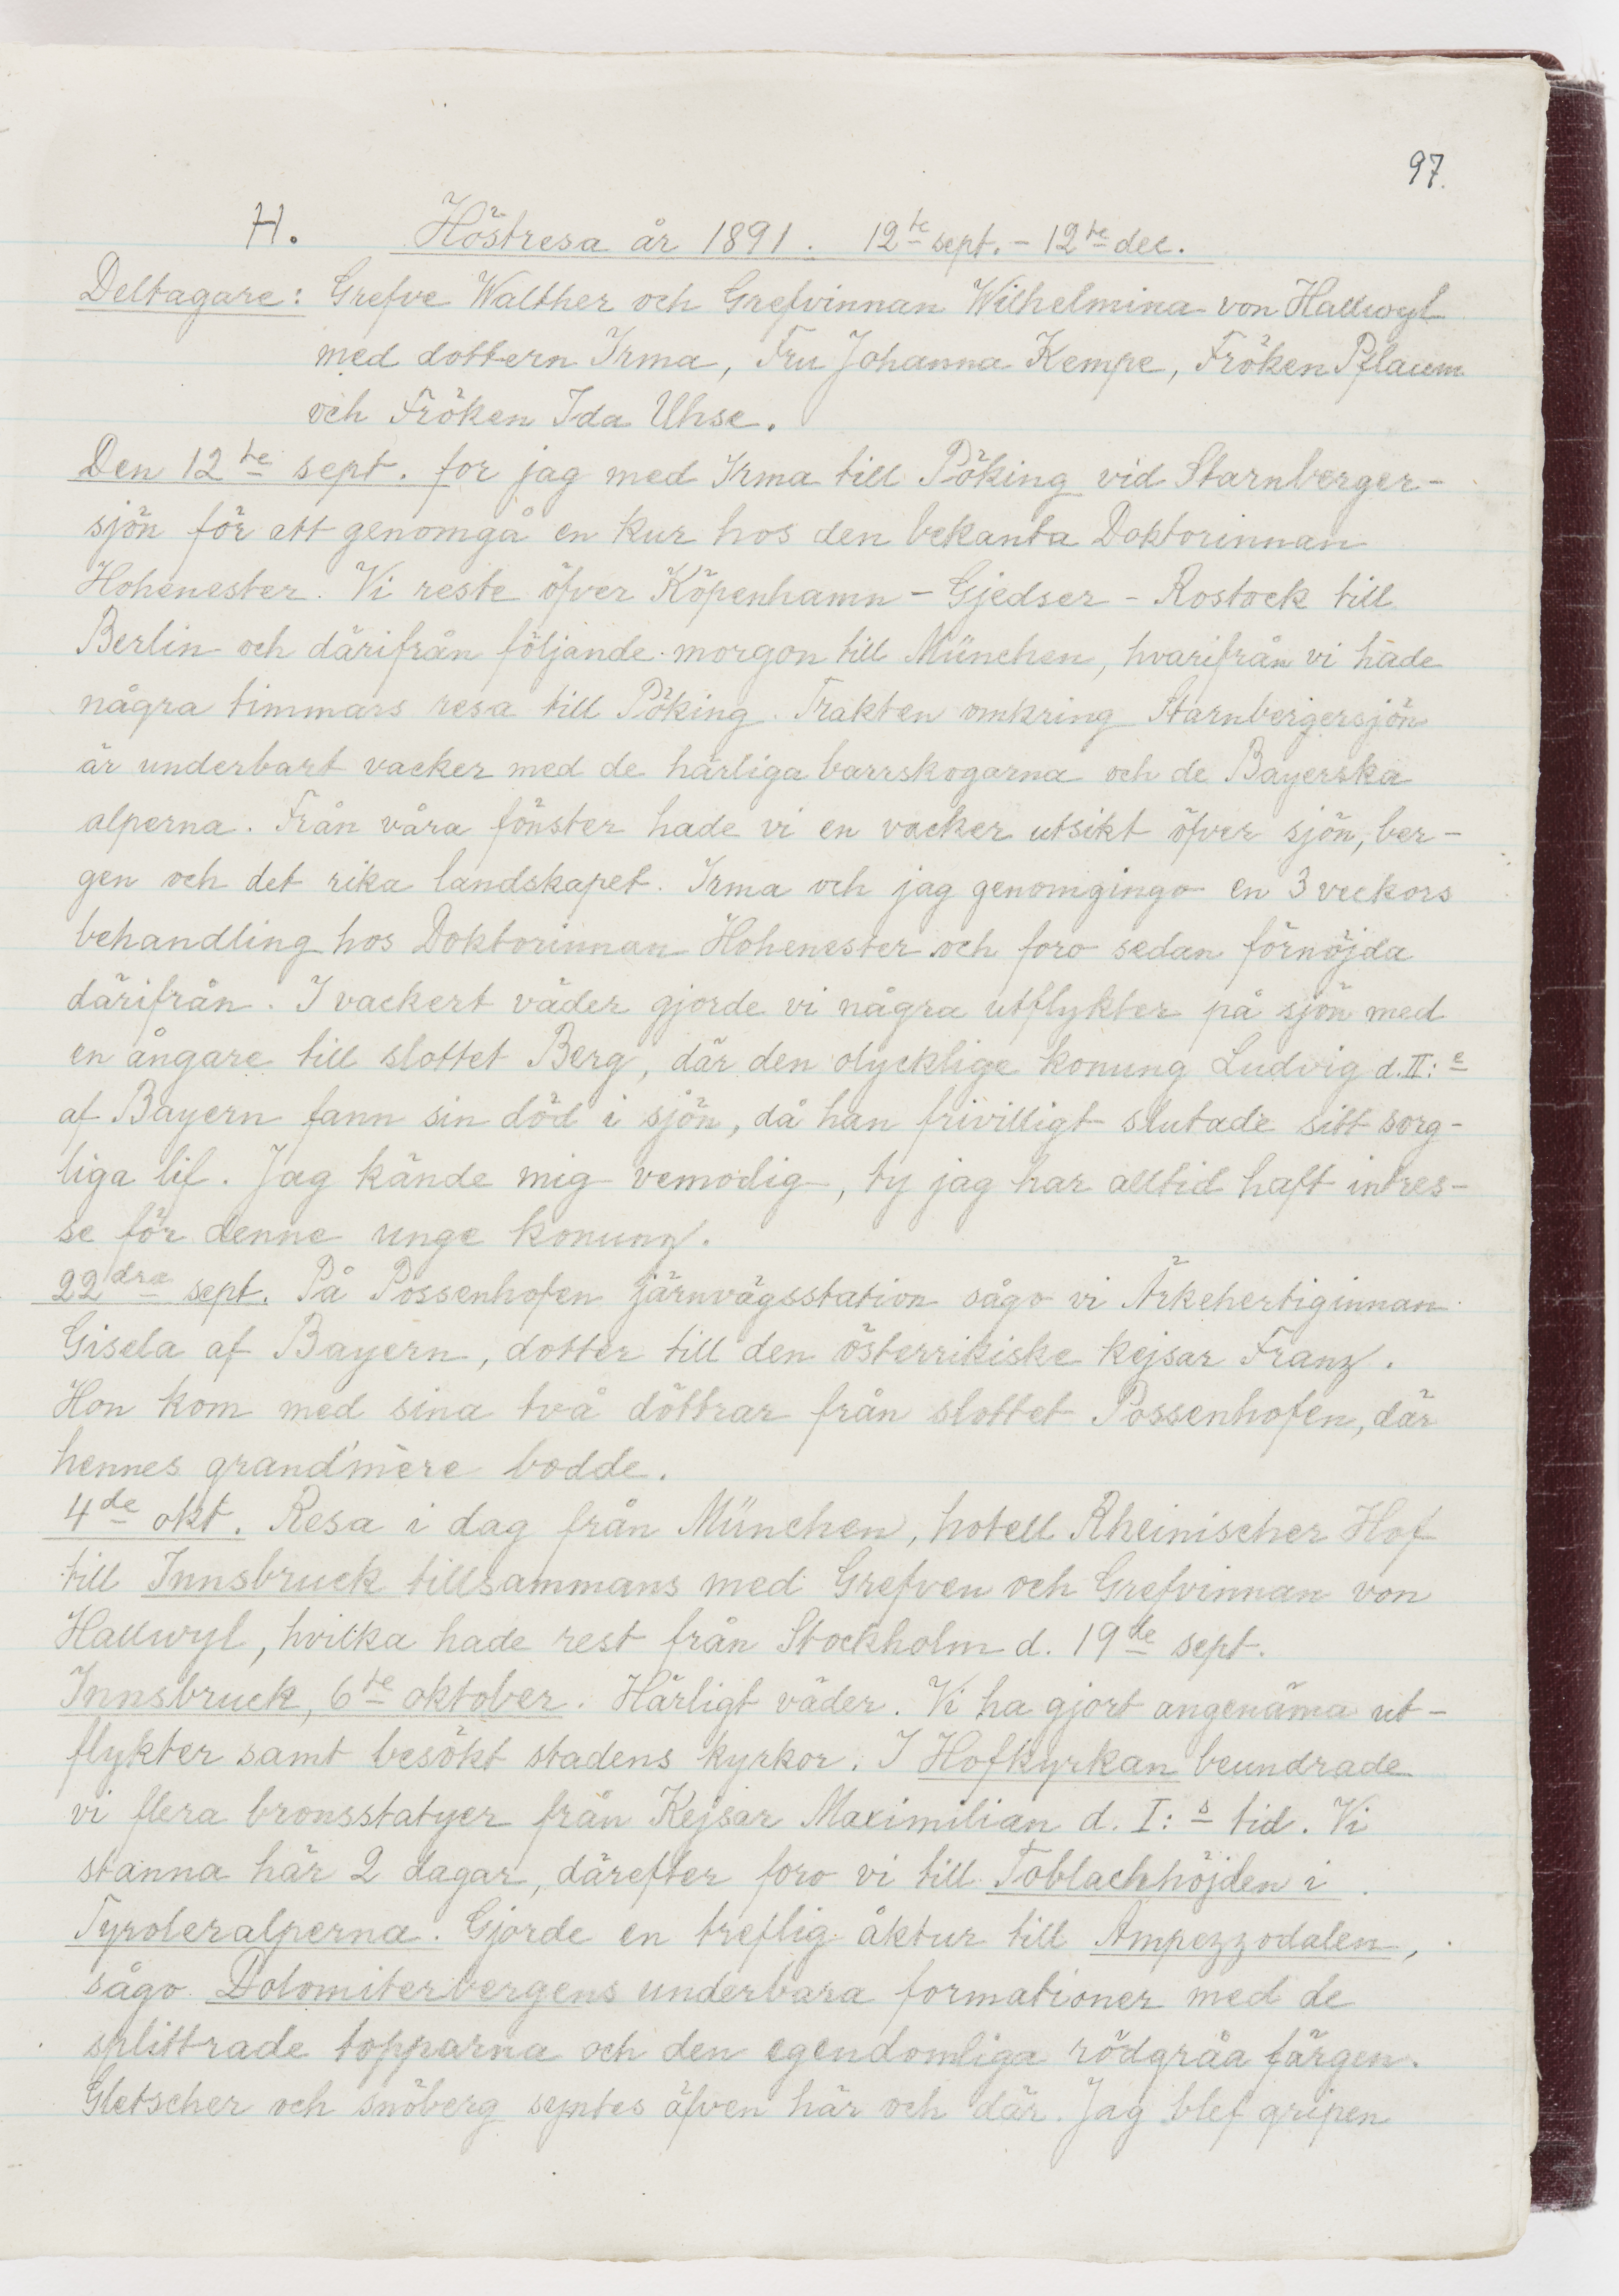 97.
H. Höstresa år 1891. 12te sept. - 12te dec.
Deltagare: Grefve Walther och Grefvinnan Wilhelmina von Hallwyl
med dottern Irma, Fru Johanna Kempe, Fröken Pflaum
och Fröken Ida Uhse.
Den 12te sept. for jag med Irma till Pöking vid Starnberger-
sjön för att genomgå en kur hos den bekanta Doktorinnan
Hohenester. Vi reste öfver Köpenhamn - Gjedser - Rostock till
Berlin och därifrån följande morgon till München, hvarifrån vi hade
några timmars resa till Pöking. Trakten omkring Starnbergersjön
är underbart vacker med de härliga barrskogarna och de Bayerska
alperna. Från våra fönster hade vi en vacker utsikt öfver sjön, ber-
gen och det rika landskapet. Irma och jag genomgingo en 3 veckors
behandling hos Doktorinnan Hohenester och foro sedan förnöjda
därifrån. I vackert väder gjorde vi några utflykter på sjön med
en ångare till slottet Berg, där den olycklige konung Ludvig d. II:e
af Bayern fann sin död i sjön, då han frivilligt slutade sitt sorg-
liga lif. Jag kände mig vemodig, ty jag har alltid haft intres-
se för denne unge konung.
22dra sept. På Possenhofen järnvägsstation sågo vi Ärkehertiginnan
Gisela af Bayern, dotter till den österrikiske kejsar Franz.
Hon kom med sina två döttrar från slottet Possenhofen, där
hennes grand'mère bodde.
4de okt. Resa i dag från München, hotell Rheinischer Hof
till Innsbruck tillsammans med Grefven och Grefvinnan von
Hallwyl, hvilka hade rest från Stockholm d. 19de sept.
Innsbruck, 6te oktober. Härligt väder. Vi ha gjort angenäma ut-
flykter samt besökt stadens kyrkor. I Hofkyrkan beundrade
vi flera bronsstatyer från Kejsar Maximilian d. I:s tid. Vi
stanna här 2 dagar, därefter foro vi till Toblachhöjden i
Tyroleralperna. Gjorde en treflig åktur till Ampezzodalen,
sågo Dolomiterbergens underbara formationer med de
splittrade topparna och den egendomliga rödgråa färgen.
Gletscher och snöberg syntes äfven här och där. Jag blef gripen